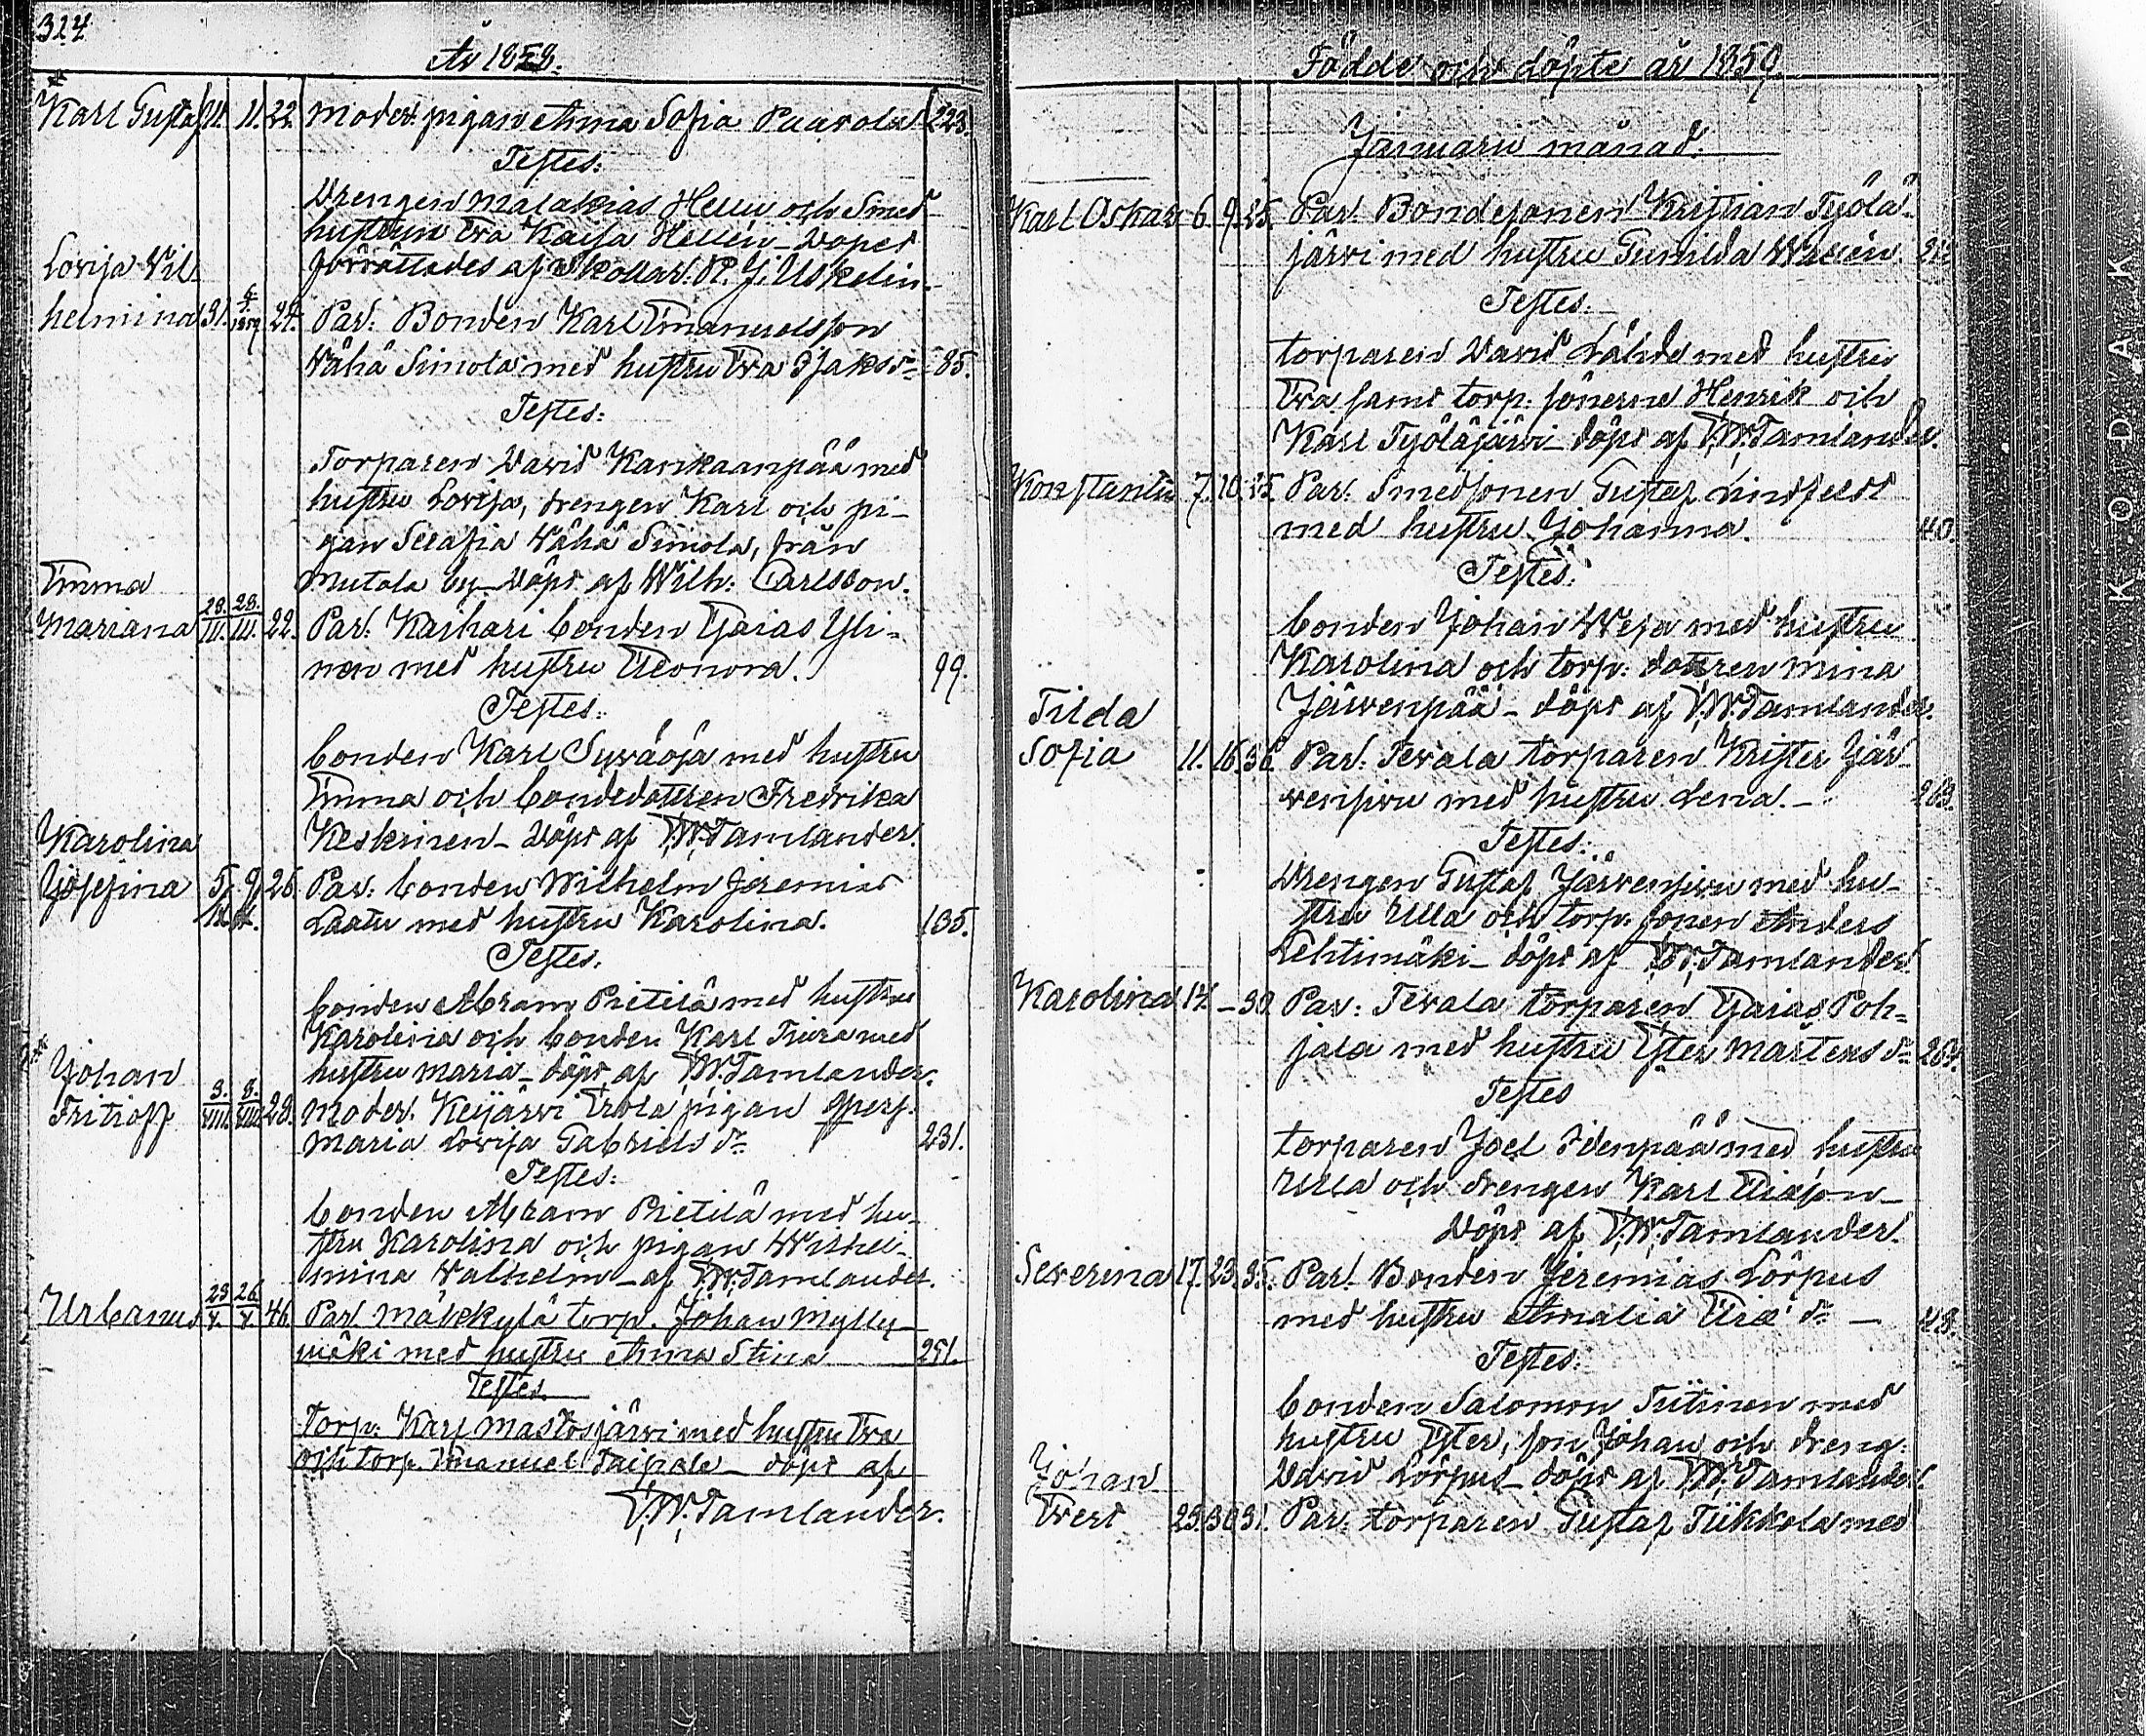 324
År 1858.
Karl Gustaf 11. 11. 22. Moder: pigan Anna Sofia Paavola 223.
Testes:
Drengen Malakias Hellen och Smed
hustrun Eva Kaisa Hellén – dopet
förrättades af
Lovisa Vil-
helmina 31. 6/1 1859 24. Par: Bonden Karl Emanuelsson
Wähä Simola med hustru Eva Isaks dr 85.
Testes:
Torparen David Kankaanpää med
hustru Lovisa, drengen Karl och pi-
gan Serafia Wähä Simola, från
Mutala by – döpt af Wilh: Carlsson.
Emma
Mariana 28./III. 28./III. 22. Par: Kaihari bonden Esaias Yli-
nen med hustru Eleonora. 99.
Testes:
bonden Karl Syväoja med hustru
Emma och bondedottren Fredrika
Keskinen – döpt af T.W. Tamlander.
Karolina
Josefina 5/ 9/ 26. Par: bonden Wilhelm Jeremias
Laatu med hustru Karolina. 135.
Testes.
bonden Abram Pietilä med hustru
Karolina och bonden Karl med
hustru Maria – döpt af T.W. Tamlander.
Johan
Fritioff 3./VIII. 8./VIII. 28. Moder: Keijärvi Erola pigan
Maria Lovisa Gabriels dr 231.
Testes:
bonden Abram Pietilä med hu-
stru Karolina och pigan Wilhel-
mina Walhelm – af T.W. Tamlander.
Urbanus 23/V. 26./V. 46. Par: Mälkkylä torp. Johan Mylly-
mäki med hustru Anna Stina 251.
Testes.
Torp: Karl Mastosjärvi med hustru Eva
och torp. Emanuel Taipale – döpt af
T.W. Tamlander.
Födde och döpte år 1859.
Januarii månad.
Karl Oskar 6. 9. 25. Par: Bondesonen Kristian Työlä-
järvi med hustru Gunilda 212
Testes:
torparen David Lähde med hustru
Eva samt torp: sönerne Henrik och
Karl Työläjärvi – döpt af T.W. Tamlander.
Konstantin 7. 10. 25. Par: Smedsonen Gustaf Lindfelt
med hustru Johanna. 40.
Testes:
bonden Johan Wesa med hustru
Karolina och torp: dottren Mina
Järvenpää – döpt af T.W. Tamlander.
Tilda
Sofia 11. 16. 36. Par: Tevala torparen Krister Jär-
vensivu med hustru Lena. – 263.
Testes:
Drengen Gustaf Järvensivu med hu-
stru Ulla och torp. sonen Anders
Lehtimäki – döpt af T.W. Tamlander.
Karolina 14. – 30. Par: Tevala torparen Esaias Poh-
jala med hustru Ester Mårtens dr 264.
Testes
torparen Joel Idenpää med hustru
Ulla och drengen Karl Eriksson –
Döpt af T.W. Tamlander.
Severina 17. 23. 35. Par: Bonden Jeremias Lörpus
med hustru Amalia Eric dr – 43.
Testes:
bonden Salomon Tiitinen med
hustru Ester, son Johan och dreng:
David Lörpus – döpt af T.W. Tamlander.
Johan
Evert 25. 30. 31. Par: torparen Gustaf Tiikkola med
KODAK